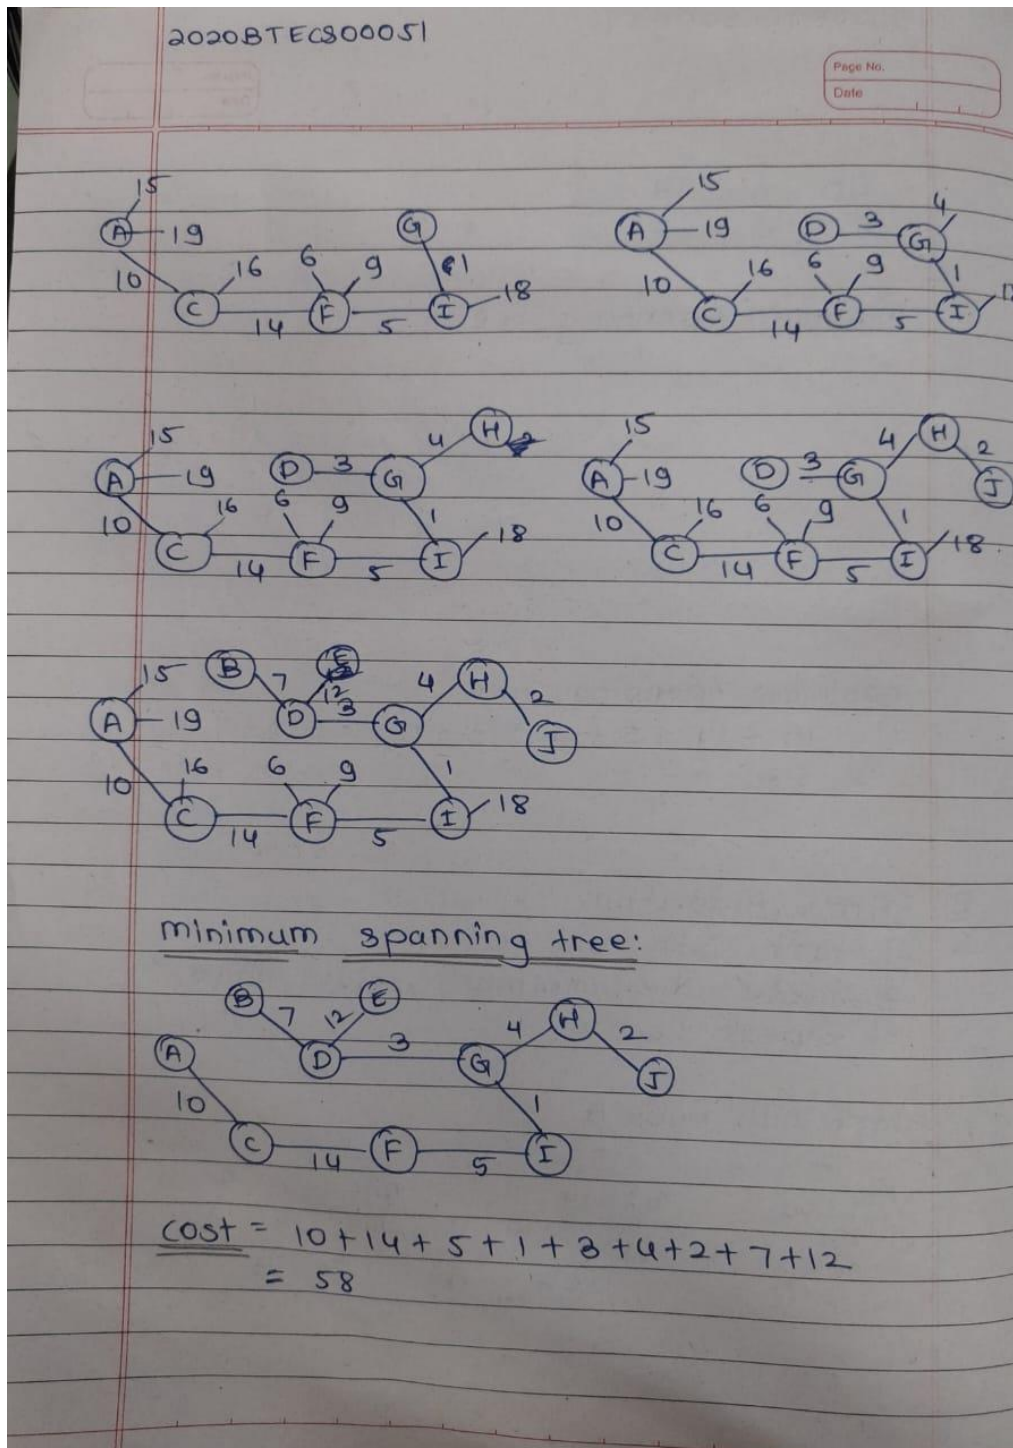 2020BTECS00051
Page No.
Date
15
A 19 G
10 16 6 9 1 18
C 14 F 5 I
15 4
A 19 D 3 G
10 16 6 9 1
C 14 F 5 I
15 4 H
A 19 D 3 G
10 16 6 9 1 18
C 14 F 5 I
15 4 H 2
A 19 D 3 G J
10 16 6 9 1 18
C 14 F 5 I
15 B 7 E 4 H 2
A 19 D 12 3 G J
10 16 6 9 1 18
C 14 F 5 I
minimum spanning tree:
B 7 12 E 4 H 2
A D 3 G J
10 1
C 14 F 5 I
cost = 10+14+5+1+3+4+2+7+12
= 58